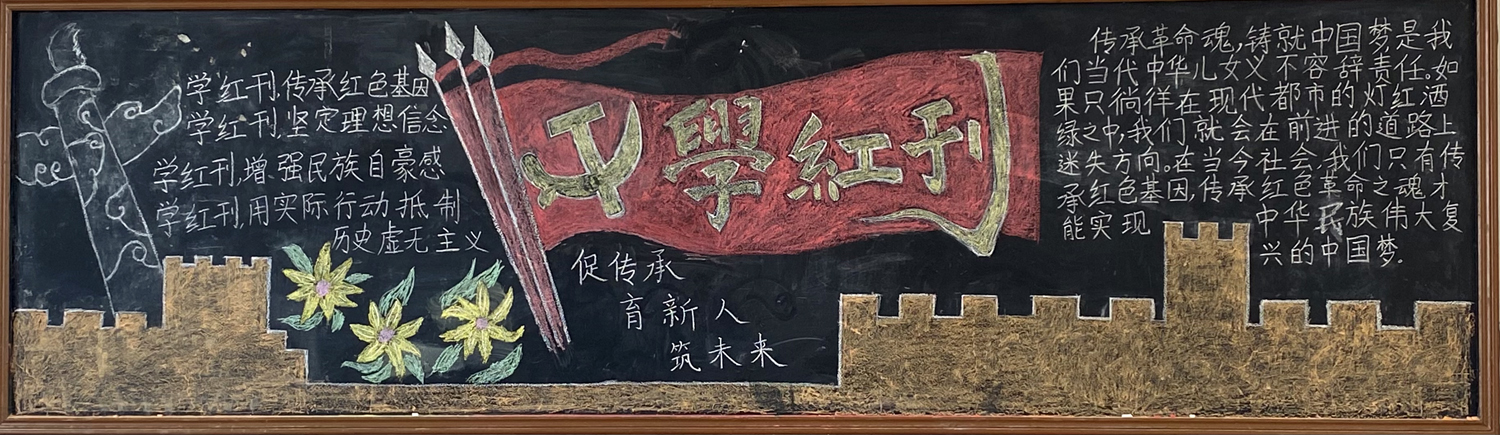 学红刊,传承红色基因
学红刊,坚定理想信念
学红刊,增强民族自豪感
学红刊,用实际行动抵制
历史虚无主义
學紅刊
促传承
育新人
筑未来
传承革命魂,铸就中国梦是我
们当代中华儿女义不容辞责任。如
果只徜徉在现代都市的灯红酒
绿之中,我们就会在前进的道路上
迷失方向。在当今社会,我们只有传
承红色基因,传承红色革命之魂才
能实现中华民族伟大复
兴的中国梦.